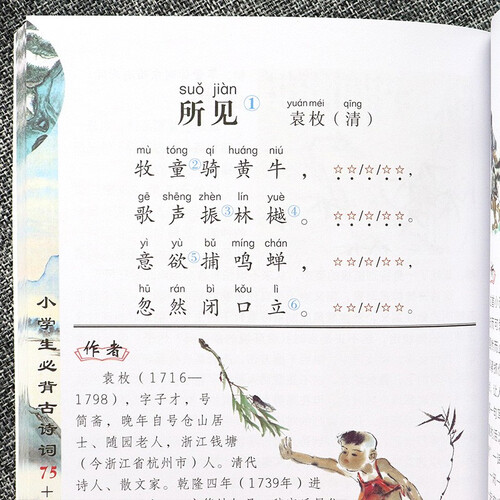 suǒ jiàn
所见①
yuán méi qīng
袁枚（清）
mù tóng qí huáng niú
牧童②骑黄牛，☆☆/☆/☆☆，
gē shēng zhèn lín yuè
歌声振③林樾④。☆☆/☆/☆☆。
yì yù bǔ míng chán
意欲⑤捕鸣蝉，☆☆/☆/☆☆，
hū rán bì kǒu lì
忽然闭口立⑥。☆☆/☆/☆☆。
作者
袁枚（1716—
1798），字子才，号
简斋，晚年自号仓山居
士、随园老人，浙江钱塘
（今浙江省杭州市）人。清代
诗人、散文家。乾隆四年（1739年）进
小学生必背古诗词75+